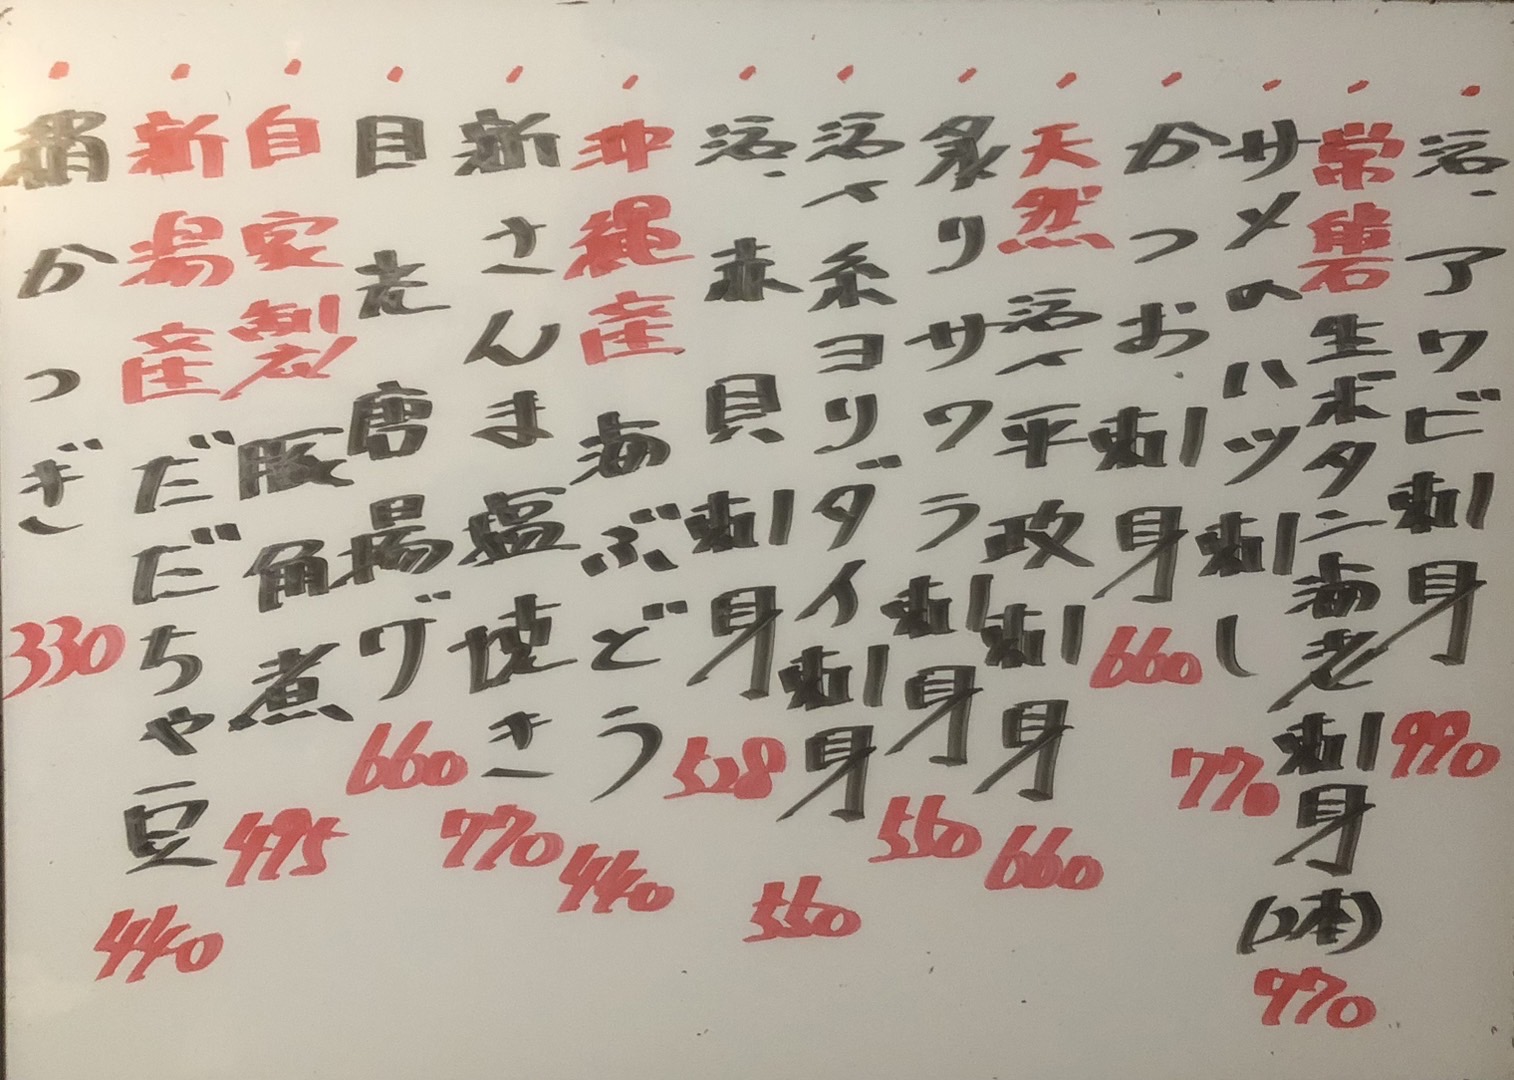 ・活、アワビ刺身 990
・常磐生ボタン海老刺身(2本) 970
・サメのハツ刺し 770
・かつお刺身 660
・天然活〆平政刺身 660
・炙りサワラ刺身 550
・活〆糸ヨリダイ刺身 550
・活、赤貝刺身 528
・沖縄産海ぶどう 440
・新さんま塩焼き 770
・目光唐揚げ 660
・自家製豚角煮 495
・新潟産だだちゃ豆 440
・絹かつぎ 330